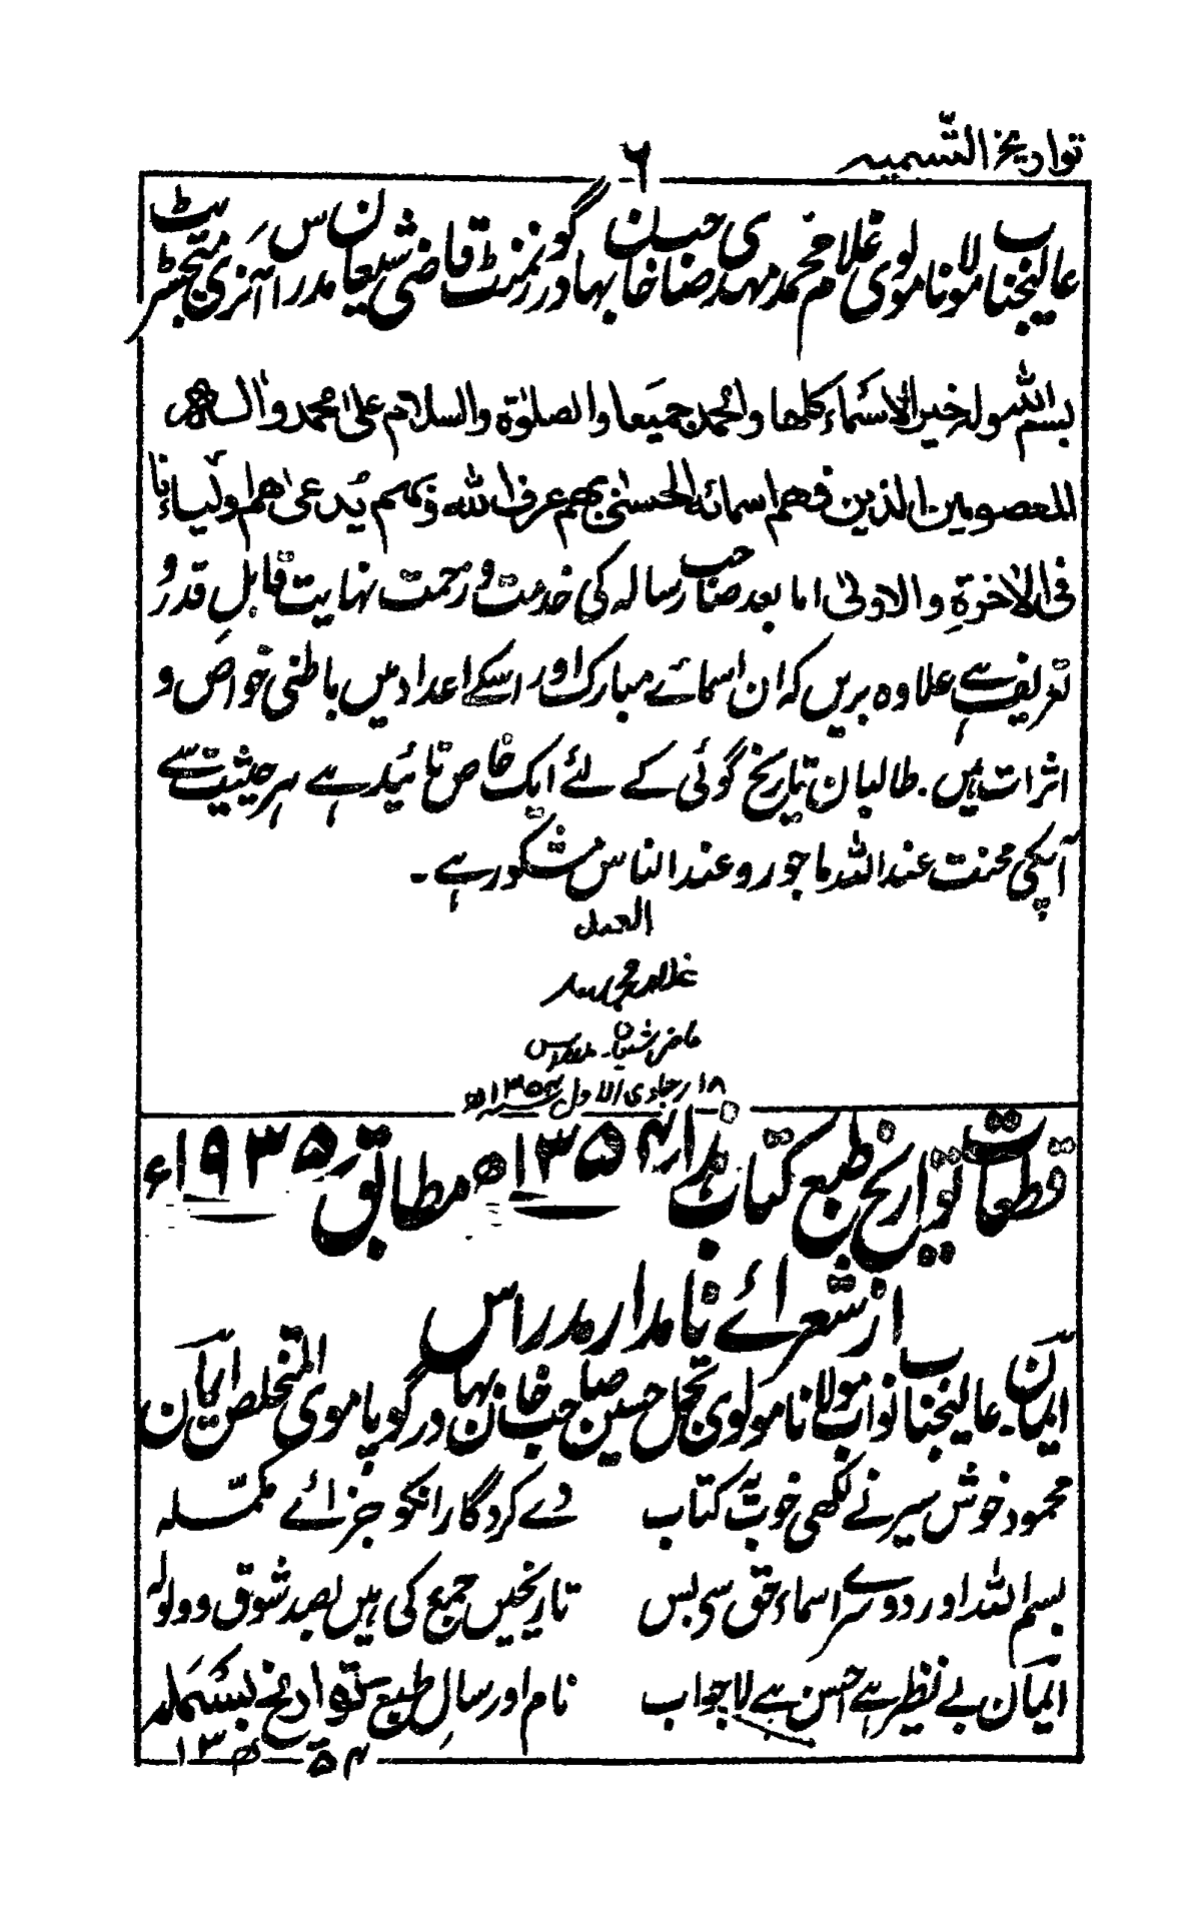 تواریخ التسمیہ
۶
عالیجناب مولانا مولوی غلام محمد مہدی صاحب خان بہادر گورنمنٹ قاضی شیعان مدراس آنریری مجسٹریٹ
بسم اللہ ولہ خیر الاسماء کلھا والحمد جمیعا والصلوٰۃ والسلام علیٰ محمد واٰلہ
المعصومین الذین فھم اسمائہ الحسنیٰ بھم عرف اللہ وبھم یُدعیٰ ھم اولیاءنا
فی الاٰخرۃِ والاولیٰ اما بعد صاحب رسالہ کی خدمت و زحمت نہایت قابلِ قدر و
تعریف ہے علاوہ بریں کہ ان اسمائے مبارک اور اسکے اعداد میں باطنی خواص و
اثرات ہیں۔ طالبان تاریخ گوئی کے لئے ایک خاص تائید ہے ہر حیثیت سے
آپکی محنت عند اللہ ماجور و عند الناس مشکور ہے۔
العبد
غلام محمد مہدی
قاضی شیعان مدراس
۱۸ جمادی الاول سنہ ۱۳۵۴ھ
قطعات تواریخ طبع کتاب ہذا در ۱۳۵۴ھ مطابق ۱۹۳۵ء
از شعرائے نامدار مدراس
ایمان۔ عالیجناب نواب مولانا مولوی تجمل حسین صاحب خان بہادر گوپاموی المتخلص ایمان
محمود خوش سیر نے لکھی خوب یہ کتاب دے کردگار انکو جزائے مکمّلہ
بسم اللہ اور دوسرے اسماء حق سی بس تاریخیں جمع کی ہیں بصد شوق و ولولہ
ایمان بے نظیر ہے احسن ہے لاجواب نام اور سالِ طبع تواریخ بسملہ
۱۳۵۴ھ